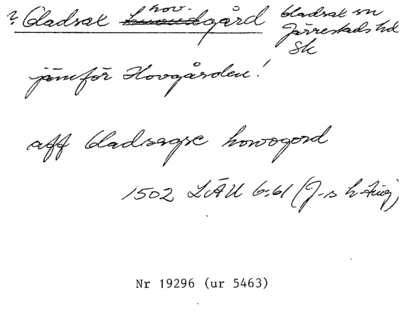 ? Gladsax hov-gård Gladsax sn
Järrestads hd
Sk
jämför Hovgården!
aff Gladsagxe howogord
1502 LÄU 6:61 (J-s h
Nr 19296 (ur 5463)